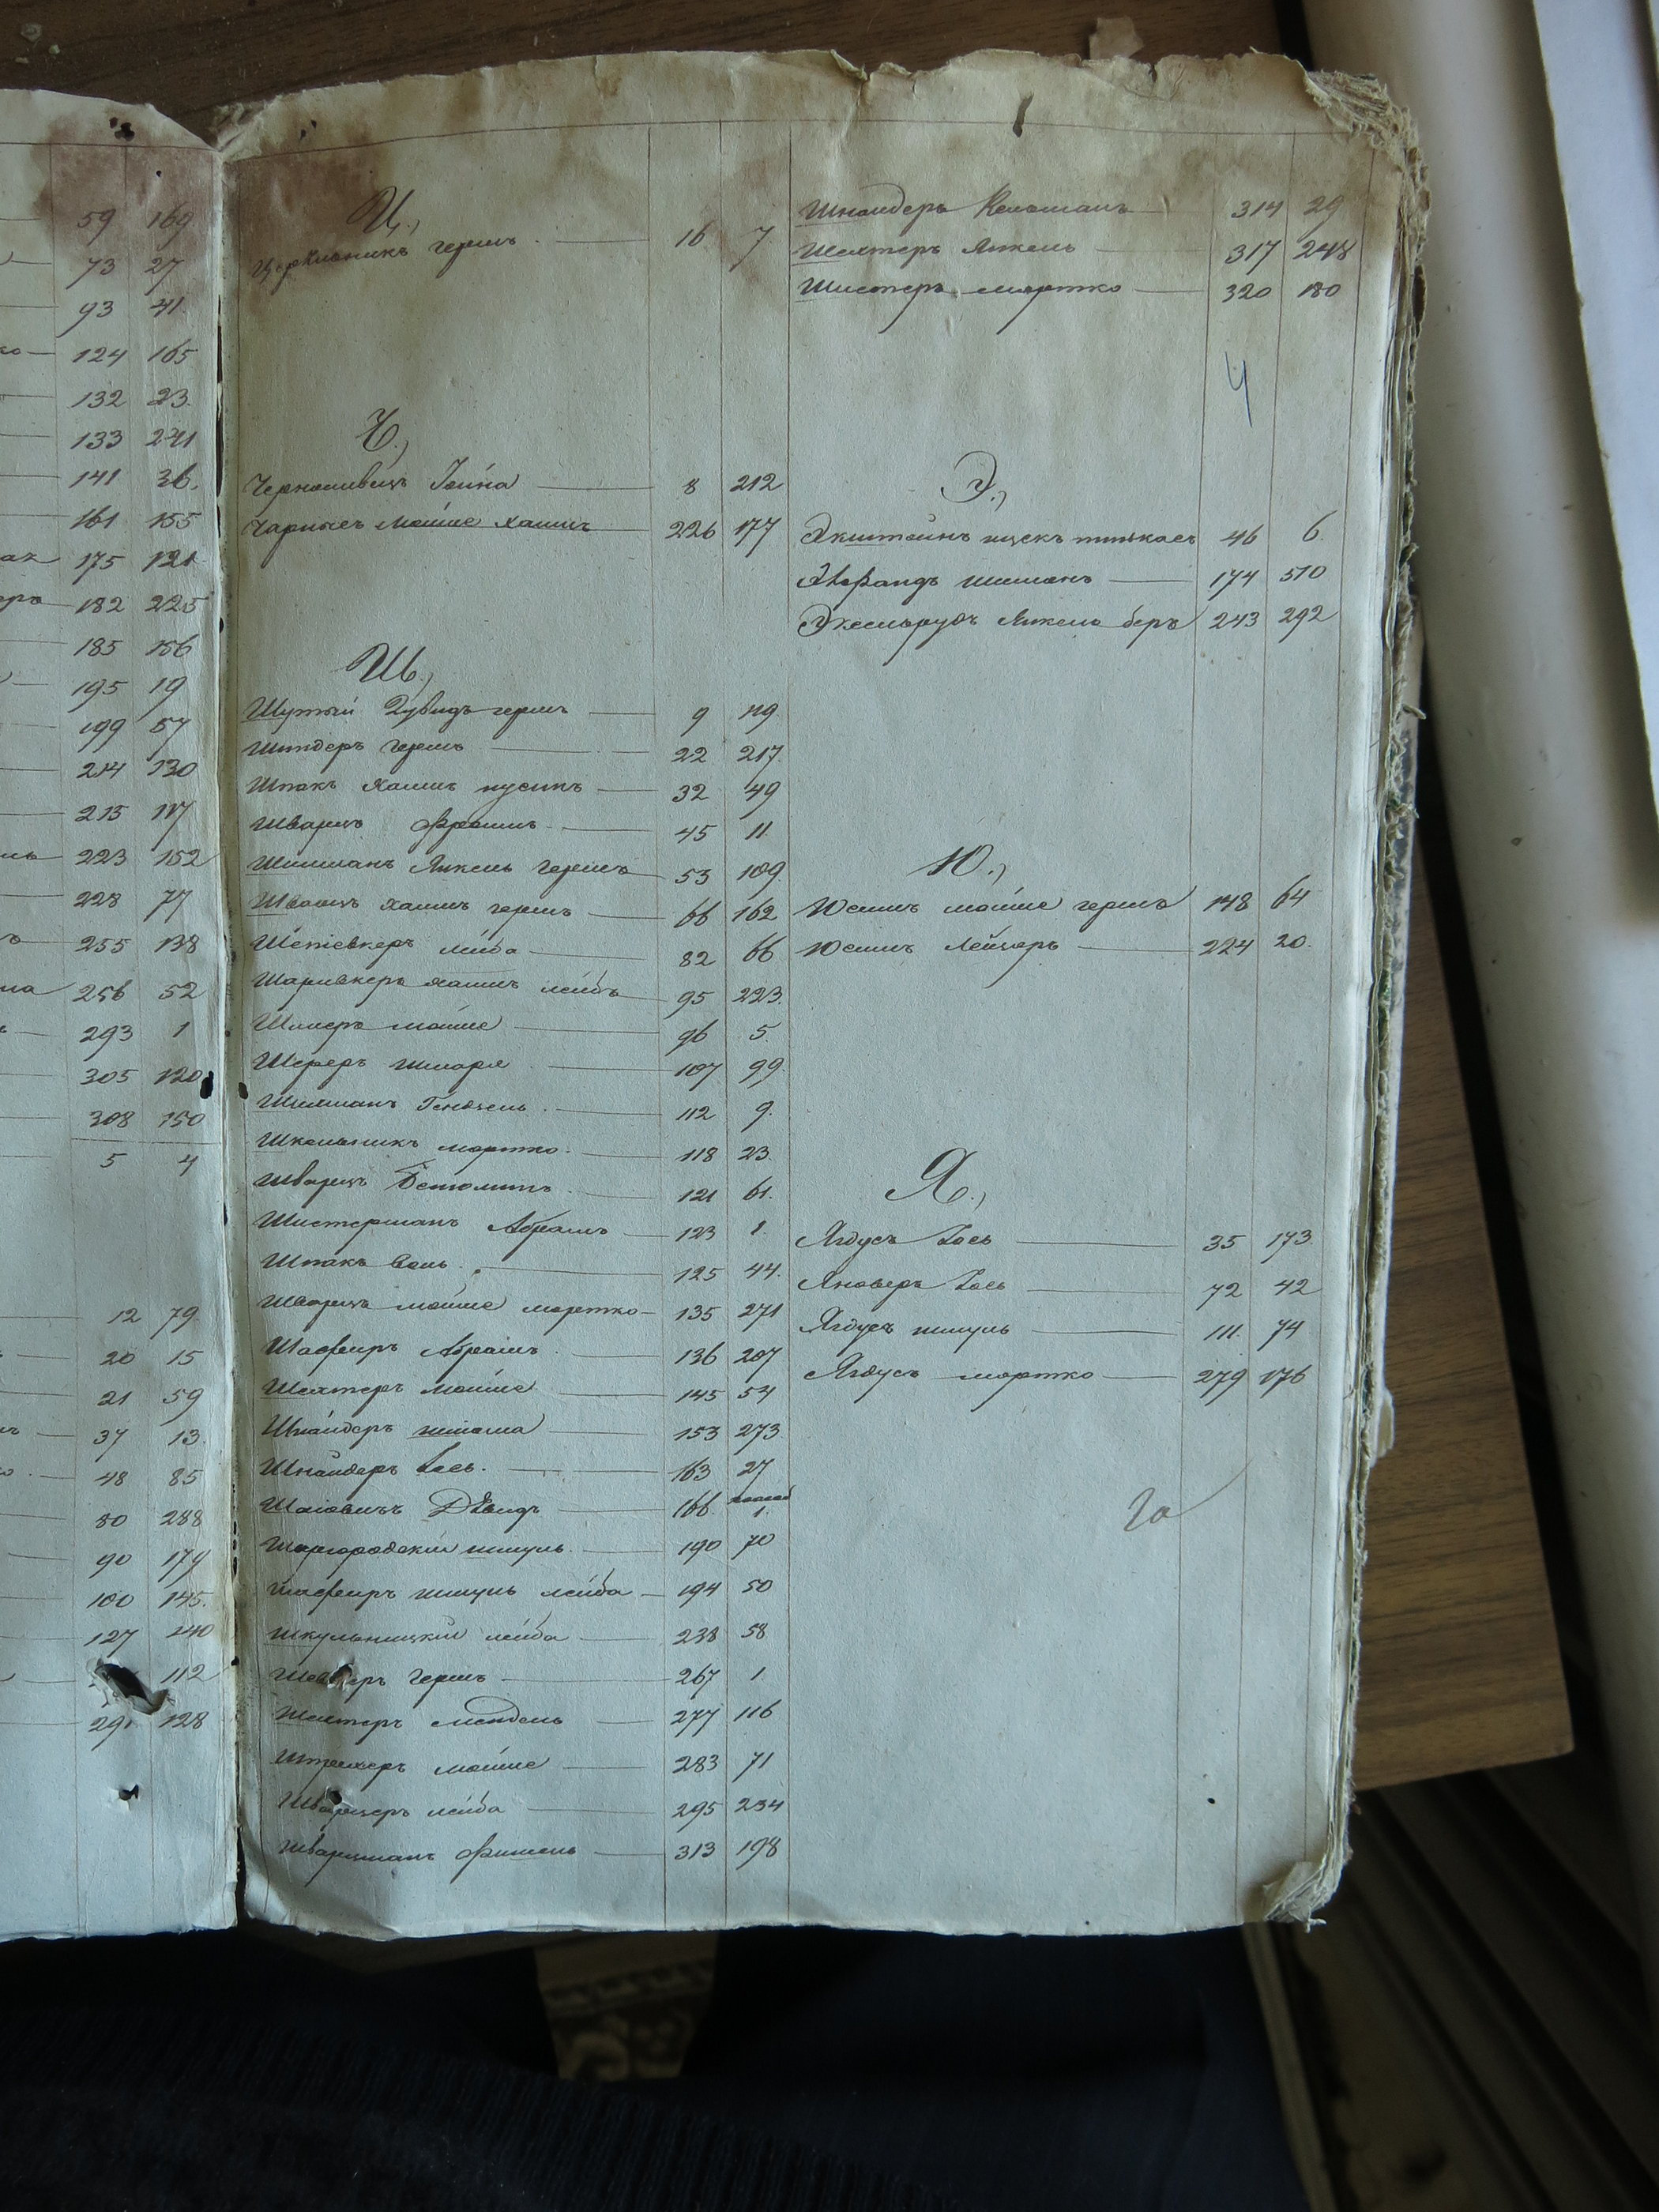 59 169
73 27
93 41
124 165
132 23.
133 241
141 36.
161 155
175 121
182 225
185 156
195 19
199 57
214 130
215 117
223 152
228 77
255 138
256 52
293 1
305 120
308 150
5 4
12 79
20 15
21 59
37 13.
48 85
80 288
90 179
100 145.
127 240
112
291 128
Ц.,
Церковникъ Гершъ 16 7
Ч.,
Черномивецъ Іойна 8 212
Чарнысъ Мойше Хаимъ 226 177
Ш.,
Шутый Дувидъ Гершъ 9 119
Шнидеръ Гершъ 22 217
Шпакъ Хаимъ Нусинъ 32 49
Шварцъ Фроимъ 45 11
Шисманъ Янкель Гершъ 53 109
Шварцъ Хаимъ Гершъ 66 162
Шепіевкеръ Лейба 82 66
Шаривкеръ Хаимъ Лейбъ 95 223.
Мойше 96 5.
Шереръ Шмарія 107 99.
112 9.
Школьникъ Мортко 118 23
Шварцъ 121 61.
Шистерманъ Абрамъ 123 1
Шпакъ 125 44.
Шварцъ Мойше Мортко 135 271
Шафиръ Абрамъ 136 207
Шехтеръ Мойше 145 54
Шнайдеръ Шлёма 153 273
Шнайдеръ Іось. 163 27
Давидъ 166. 1.
Шаргородскій Шмуль 190 70
Шафиръ Шмуль Лейба 194 50
Шкульницкій Лейба 238 58
Гершъ 267 1
Шехтеръ Мендель 277 116
Мойше 283 71
Шварцеръ Лейба 295 234
Шварцманъ Фишель 313 198
Шнайдеръ Кельманъ 314 29
Шехтеръ Янкель 317 248
Шистеръ Мортко 320 180
4
Э.,
Экштейнъ Ицекъ Пинкасъ 46 6
174 510
Эксельрудъ Янкель Беръ 243 292
Ю.,
Юсимъ Мойше Гершъ 148 64
Юсимъ Лейзеръ 224 20.
Я.,
Ягдусъ Іось 35 173.
Яноверъ Іось 72 42
Ягдусъ Шмуль 111. 74
Ягдусъ Мортко 279 176